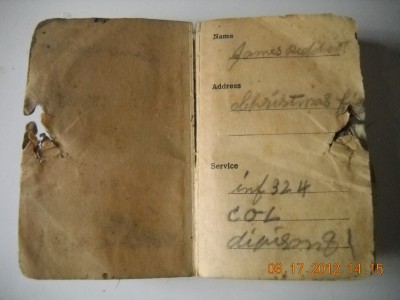 Name
James
Address
christmas
Service
inf 324
CO L
division 81
08.17.2012 14:15